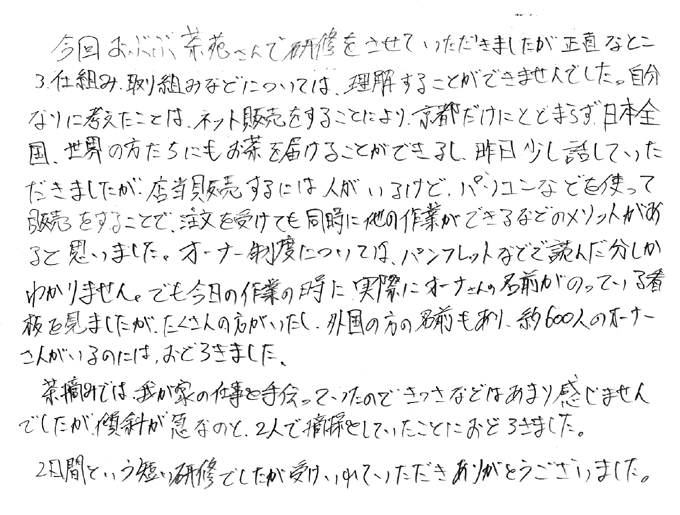 今回おぶぶ茶苑さんで研修をさせていただきましたが正直なとこ
ろ仕組み、取り組みなどについては、理解することができませんでした。自分
なりに考えたことは、ネット販売をすることにより、京都だけにとどまらず、日本全
国、世界の方たちにもお茶を届けることができるし、昨日少し話していった
だきましたが、店当販売するには人がいるけど、パソコンなどを使って
販売をすることで、注文を受けても同時に他の作業ができるなどのメリットがあ
ると思いました。オーナー制度については、パンフレットなどで読んだ分しか
わかりません。でも今日の作業の時に実際にオーナーさんの名前がのっている看
板を見ましたが、たくさんの方がいたし、外国の方の名前もあり、約600人のオーナー
さんがいるのには、おどろきました。
茶摘みでは、我が家の仕事を手伝っていったのできつさなどはあまり感じません
でしたが、傾斜が急なのと、2人で摘採をしていたことにおどろきました。
2日間という短い研修でしたが受けいれていただきありがとうございました。